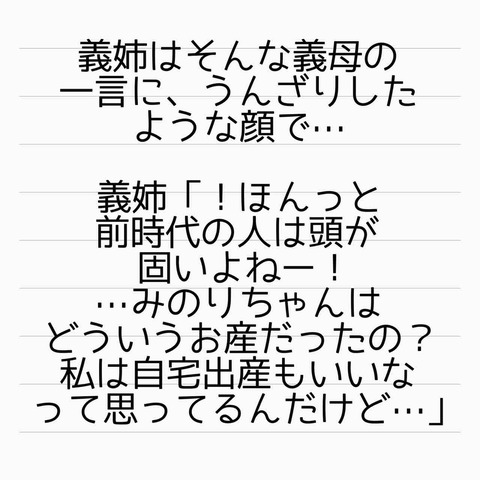 義姉はそんな義母の
一言に、うんざりした
ような顔で…
義姉「！ほんっと
前時代の人は頭が
固いよねー！
…みのりちゃんは
どういうお産だったの？
私は自宅出産もいいな
って思ってるんだけど…」